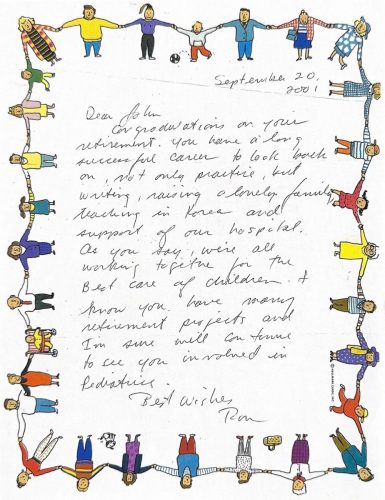 September 20,
2001
Dear John
Congradulations on your
retirement. You have a long
successful career to look back
on, not only practice, but
writing, raising a lovely family,
teaching in Korea and
support of our hospital.
As you say, we're all
working together for the
Best care of children. I
know you have many
retirement projects and
I'm sure we'll continue
to see you involved in
Pediatrics.
Best Wishes
Ron